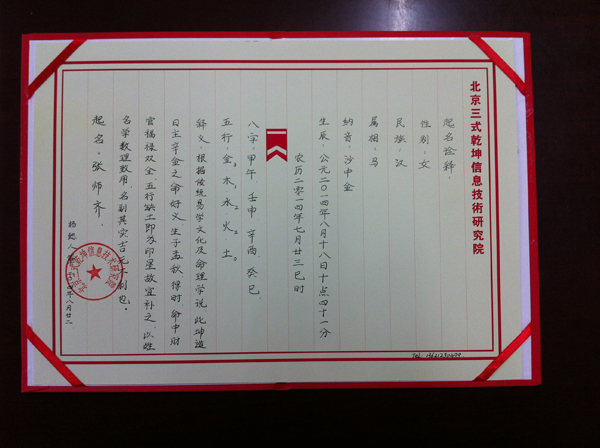 北京三式乾坤信息技術研究院
起名诠释:
性别:女
民族:汉
属相:马
纳音:沙中金
生辰:公元二〇一四年八月十八日十点四十一分
农历二零一四年七月廿三巳时
八字:甲午、壬申、辛酉、癸巳
五行:金、木、水、火、土。
释义:根据传统易学文化及命理学说,此坤造
日主辛金之命好义,生于孟秋得时,命中财
官福禄双全,五行缺土即为印星故宜补之,以姓
名学数理致用,名副其实吉元大利也。
起名:张师齐.
年八月廿二
北京三式乾坤信息技术研究院